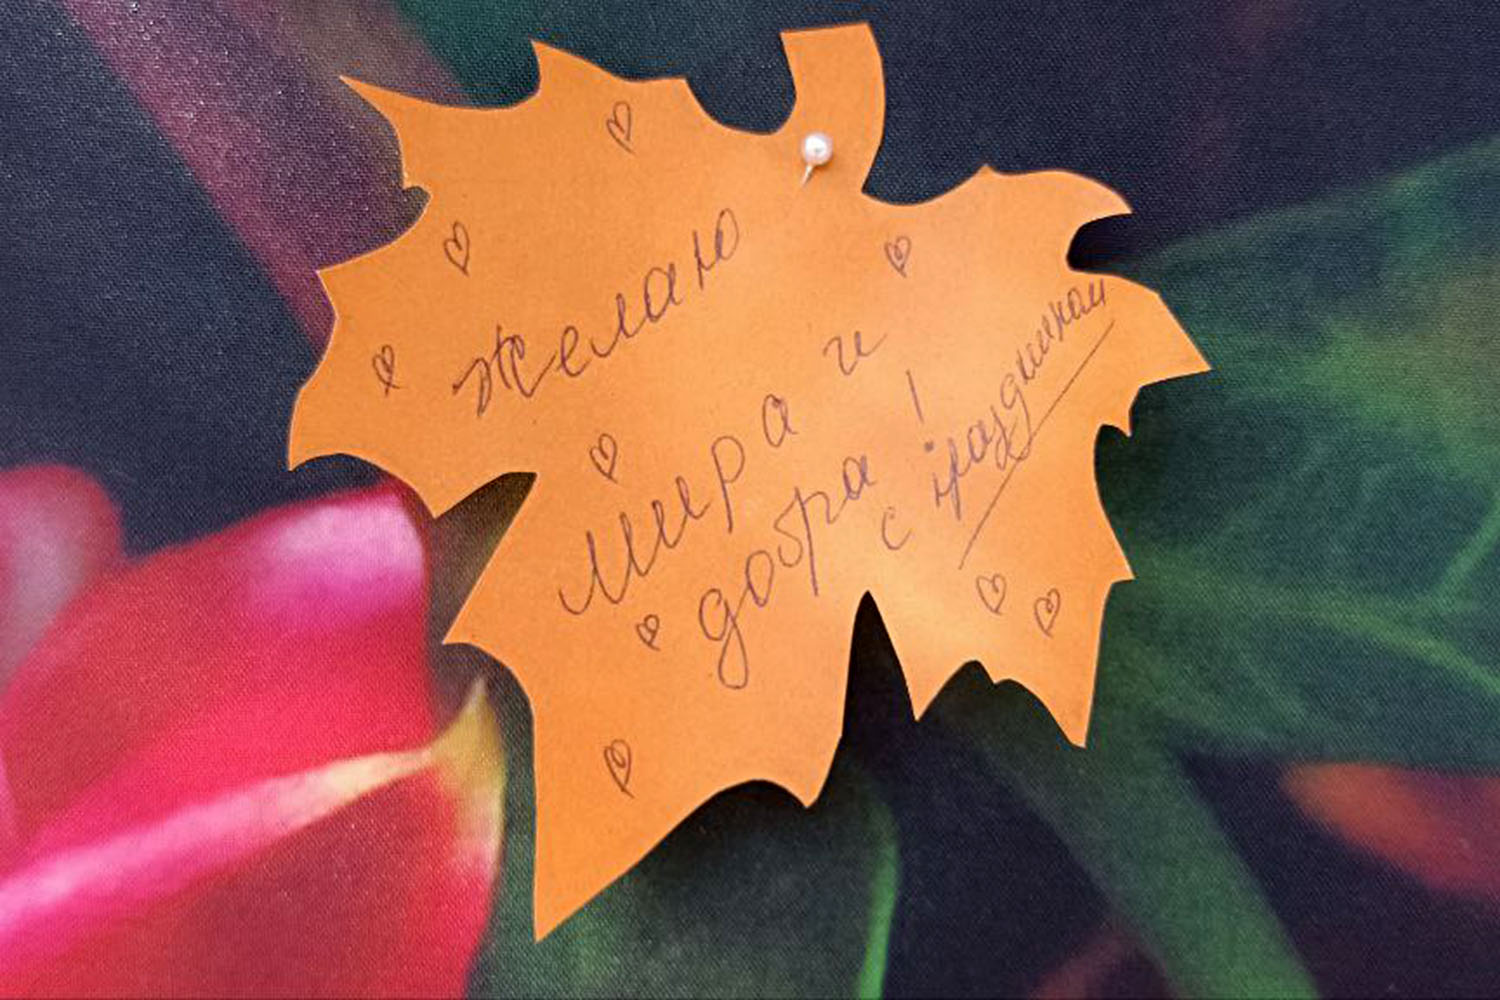 Желаю
Мира и
добра!
с праздником